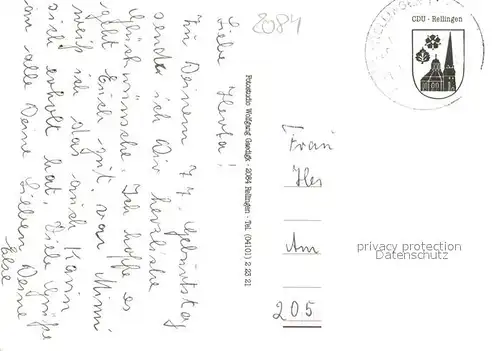 2084
Liebe Herta!
Zu Deinem 77. Geburtstag
sende ich Dir herzliche
Glückwünsche. Ich hoffe es
geht Euch gut, von Mimi
weiß ich das auch Karin
sich erholt hat. Viele Grüße
an alle Deine Lieben Deine
Else
Fotostudio Wolfgang Gaedigk · 2084 Rellingen · Tel. (04101) 2 23 21
RELLINGEN
CDU · Rellingen
Frau
Her
Am
205
privacy protection
Datenschutz